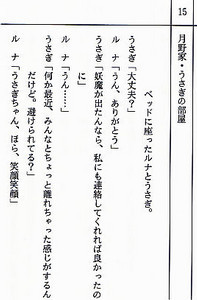 15
月野家・うさぎの部屋
ベッドに座ったルナとうさぎ。
うさぎ「大丈夫？」
ルナ「うん、ありがとう」
うさぎ「妖魔が出たんなら、私にも連絡してくれれば良かったの
に」
ルナ「うん……」
うさぎ「何か最近、みんなとちょっと離れちゃった感じがするん
だけど。避けられてる？」
ルナ「うさぎちゃん、ほら、笑顔笑顔」